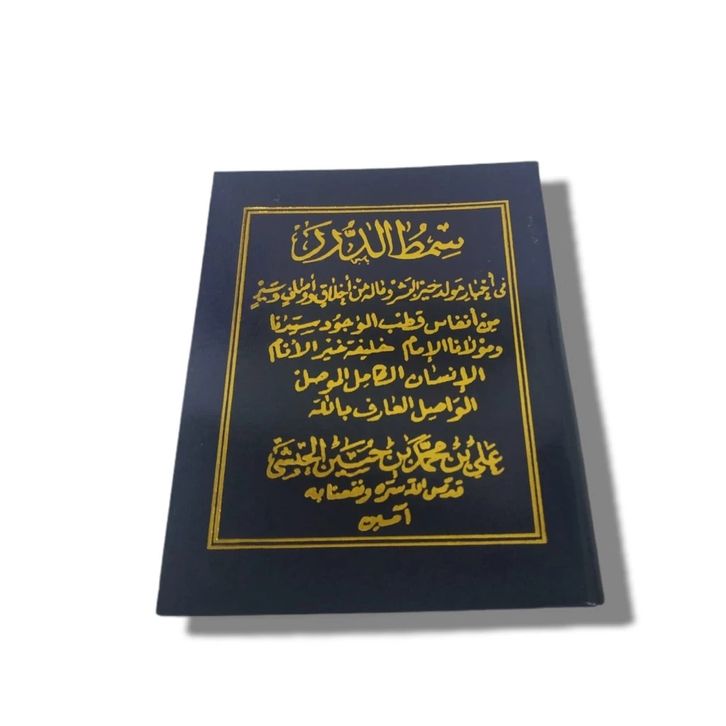 سِمْطُ الدُّرَر
في أخبار مولد خير البشر وماله من أخلاق وأوصاف وسير
من أنفاس قطب الوجود سيدنا
ومولانا الإمام خليفة خير الأنام
الإنسان الكامل الموصل
الواصل العارف بالله
علي بن محمد بن حسين الحبشي
قدس الله سره ونفعنا به
آمين